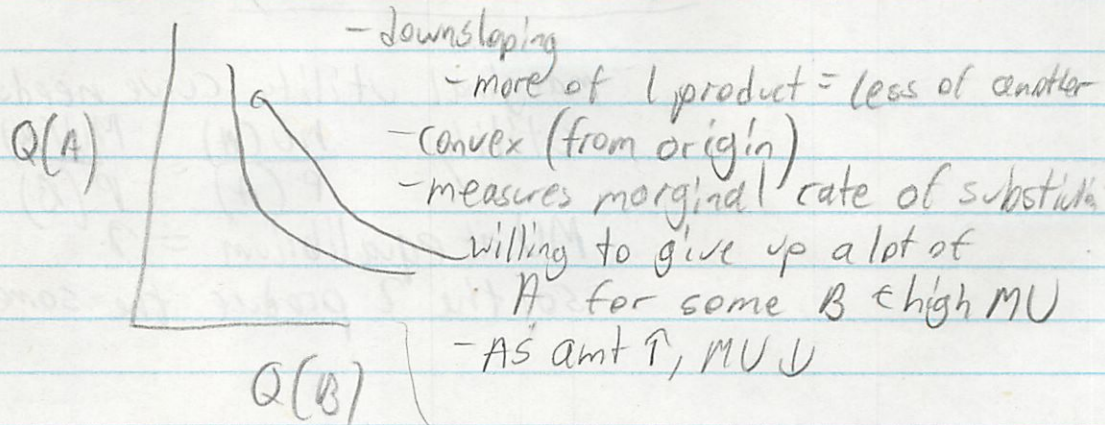 - downsloping
- more of 1 product = less of another
Q(A)
- convex (from origin)
- measures marginal rate of
willing to give up a lot of
A for some B ← high MU
- As amt ↑, MU ↓
Q(B)